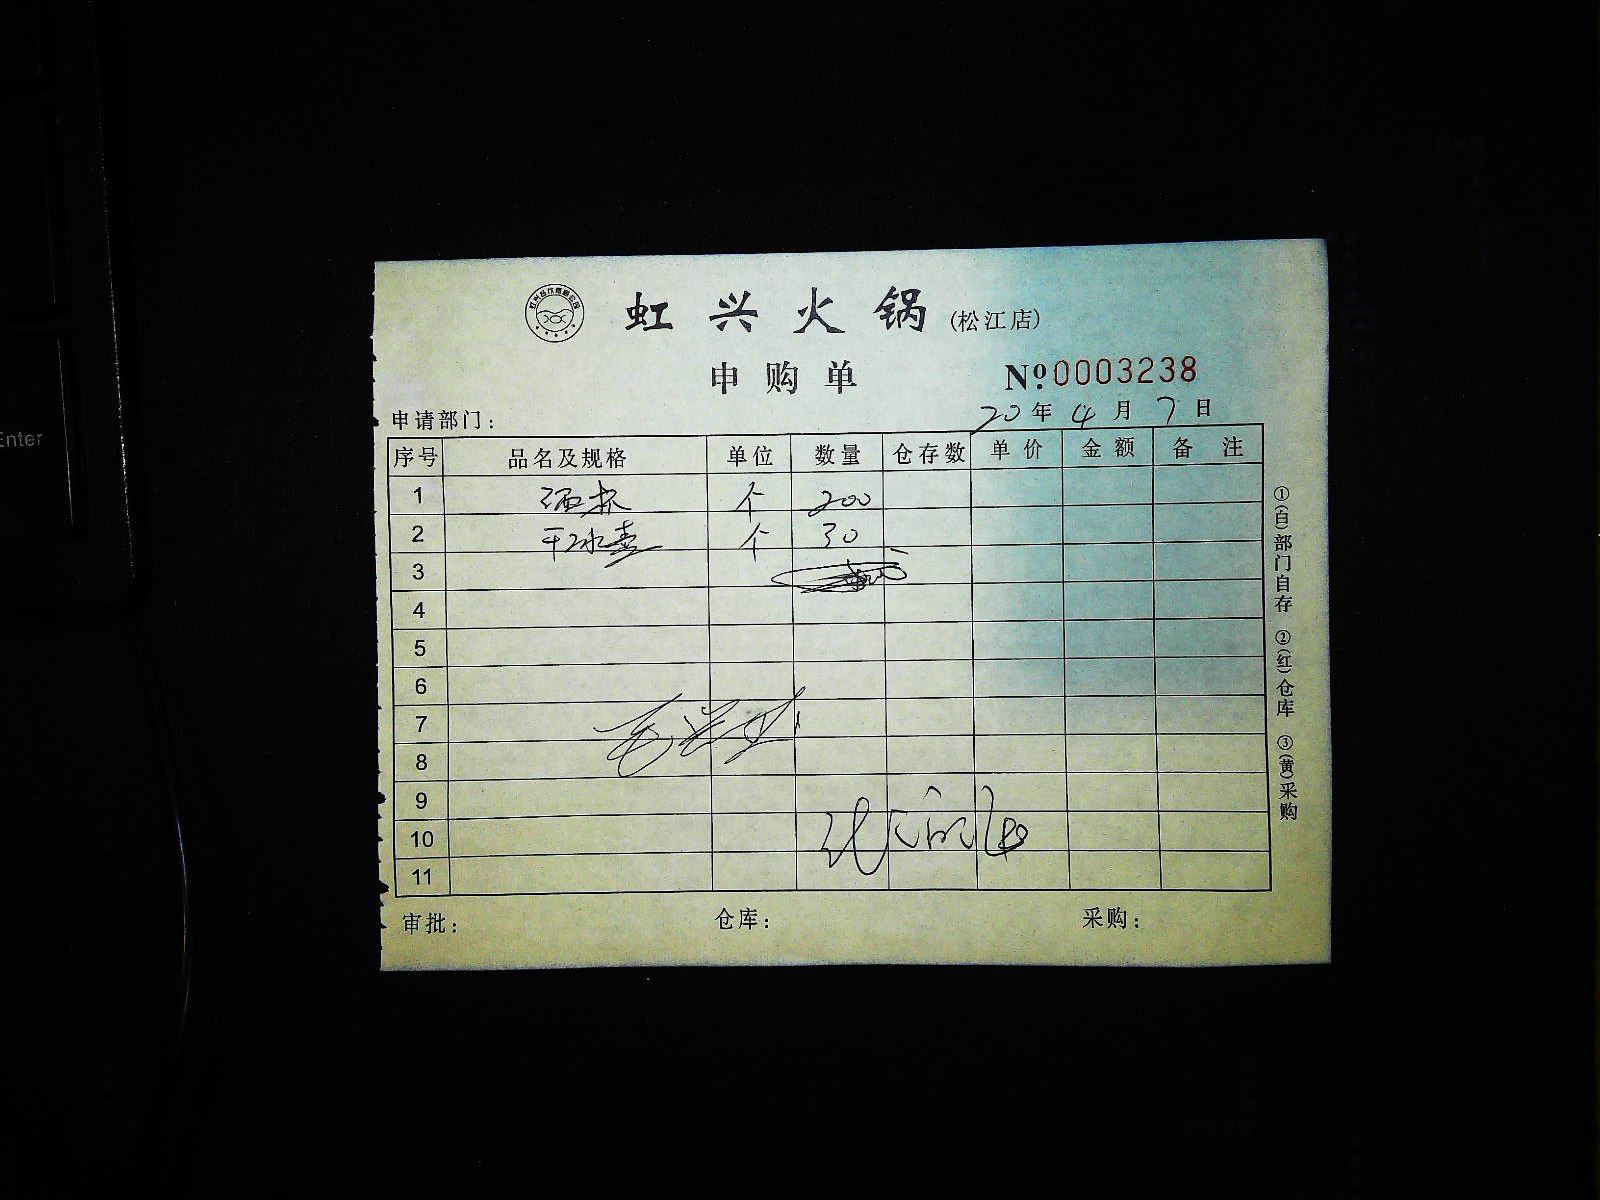 Enter
虹兴火锅(松江店)
申购单
№0003238
申请部门:
20年4月7日
序号 品名及规格 单位 数量 仓存数 单价 金额 备注
1 酒杯 个 200
2 干冰壶 个 30
3
4
5
6
7
8
9
10
11
审批: 仓库: 采购:
①(白)部门自存 ②(红)仓库 ③(黄)采购